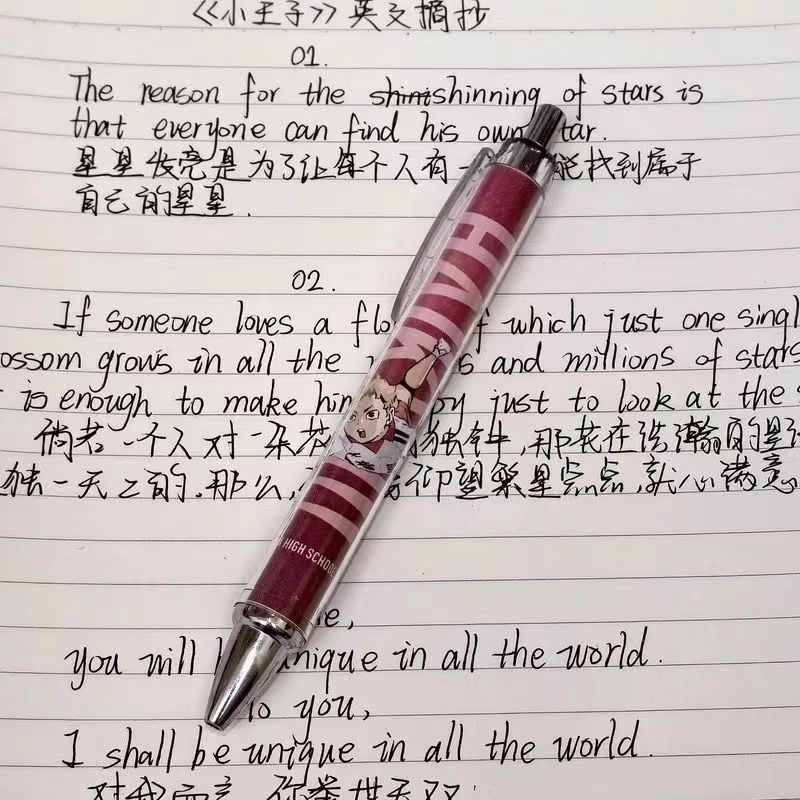 《小王子》英文摘抄
01.
The reason for the shinishinning of stars is
that everyone can find his own tar.
星星发亮是为了让每个人有一 能找到属于
自己的星星.
02.
If someone loves a flo f which just one singl
ossom grows in all the s and millions of stars
is enough to make him py just to look at the s
倘若一个人对一朵花 独钟,那花在浩瀚的星
独一无二的.那么, 仰望繁星点点,就心满意
e,
you will b unique in all the world.
To you,
I shall be unique in all the world.
对我而言,你举世无双.
HIGH SCHOOL